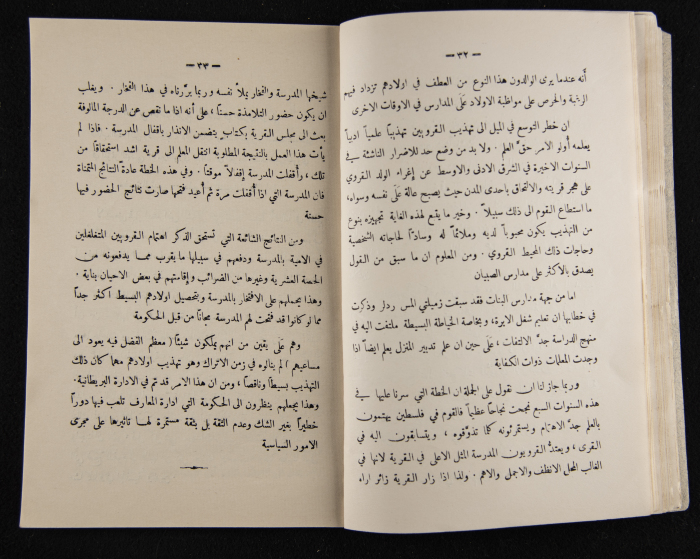 — ٣٢ —
أنه عندما يرى الوالدون هذا النوع من العطف في اولادهم تزداد فيهم
الرغبة والحرص على مواظبة الاولاد على المدارس في الاوقات الاخرى
ان خطر التوسع في الميل الى تهذيب القرويين تهذيباً علمياً ادبياً
يعلمه أولو الامر حق العلم . ولا بد من وضع حد للاضرار الناشئة في
السنوات الاخيرة في الشرق الادنى والاوسط عن إغراء الولد القروي
على هجر قريته والالتحاق باحدى المدن حيث يصبح عالة على نفسه وسواه،
ما استطاع القوم الى ذلك سبيلاً . وخير ما يقع لهذه الغاية تجهيزه بنوع
من التهذيب يكون محبوباً لديه وملائماً له وساداً لحاجاته الشخصية
وحاجات ذلك المحيط القروي . ومن المعلوم ان ما سبق من القول
يصدق بالاكثر على مدارس الصبيان
اما من جهة مدارس البنات فقد سبقت زميلتي المس ردلر وذكرت
في خطابها ان تعليم شغل الابرة، وبخاصة الخياطة البسيطة ملتفت اليه في
منهج الدراسة جد الالتفات ، على حين ان علم تدبير المنزل يعلم ايضاً اذا
وجدت المعلمات ذوات الكفاية
وربما جاز لنا ان نقول على الجملة ان الخطة التي سرنا عليها في
هذه السنوات السبع نجحت نجاحاً عظيماً فالقوم في فلسطين يهتمون
بالعلم جد الاهتمام ويستمرئونه كلما تذوقوه ، ويتسابقون اليه في
القرى ، ويعتد القرويون المدرسة المثل الاعلى في القرية لانها في
الغالب المحل الانظف والاجمل والاهم . ولذا اذا زار القرية زائر اراه
— ٣٣ —
شيخها المدرسة والفخار يملأ نفسه وربما يزّ رثاه في هذا الفخار . ويغلب
ان يكون حضور التلامذة حسناً ، على أنه اذا ما نقص عن الدرجة المالوفة
بعث الى مجلس القرية بكتاب يتضمن الانذار باقفال المدرسة . فاذا لم
يأت هذا العمل بالنتيجة المطلوبة انتقل المعلم الى قرية اشد استحقاقاً من
تلك ، وأقفلت المدرسة إقفالاً موقتاً . وفي هذه الخطة عادة النتائج المتمناة
فان المدرسة التي اذا أقفلت مرة ثم أعيد فتحها صارت نتائج الحضور فيها
حسنة
ومن النتائج الشائعة التي تستحق الذكر اهتمام القرويين المتغلغلين
في الامية بالمدرسة ودفعهم في سبيلها ما يقرب مما يدفعونه من
الحصة العشرية وغيرها من الضرائب وإقامتهم في بعض الاحيان بناية .
وهذا يحملهم على الافتخار بالمدرسة وبتحصيل اولادهم البسيط اكثر جداً
مما لو كانوا قد فتحت لهم المدرسة مجاناً من قبل الحكومة
وهم على يقين من انهم يملكون شيئاً (معظم الفضل فيه يعود الى
مساعيهم) لم ينالوه في زمن الاتراك وهو تهذيب اولادهم مهما كان ذلك
التهذيب بسيطاً وناقصاً ، ومن ان هذا الامر قد تم في الادارة البريطانية .
وهذا يجعلهم ينظرون الى الحكومة التي ادارة المعارف تلعب فيها دوراً
خطيراً بغير الشك وعدم الثقة بل بثقة مستمرة لها تاثيرها على مجرى
الامور السياسية